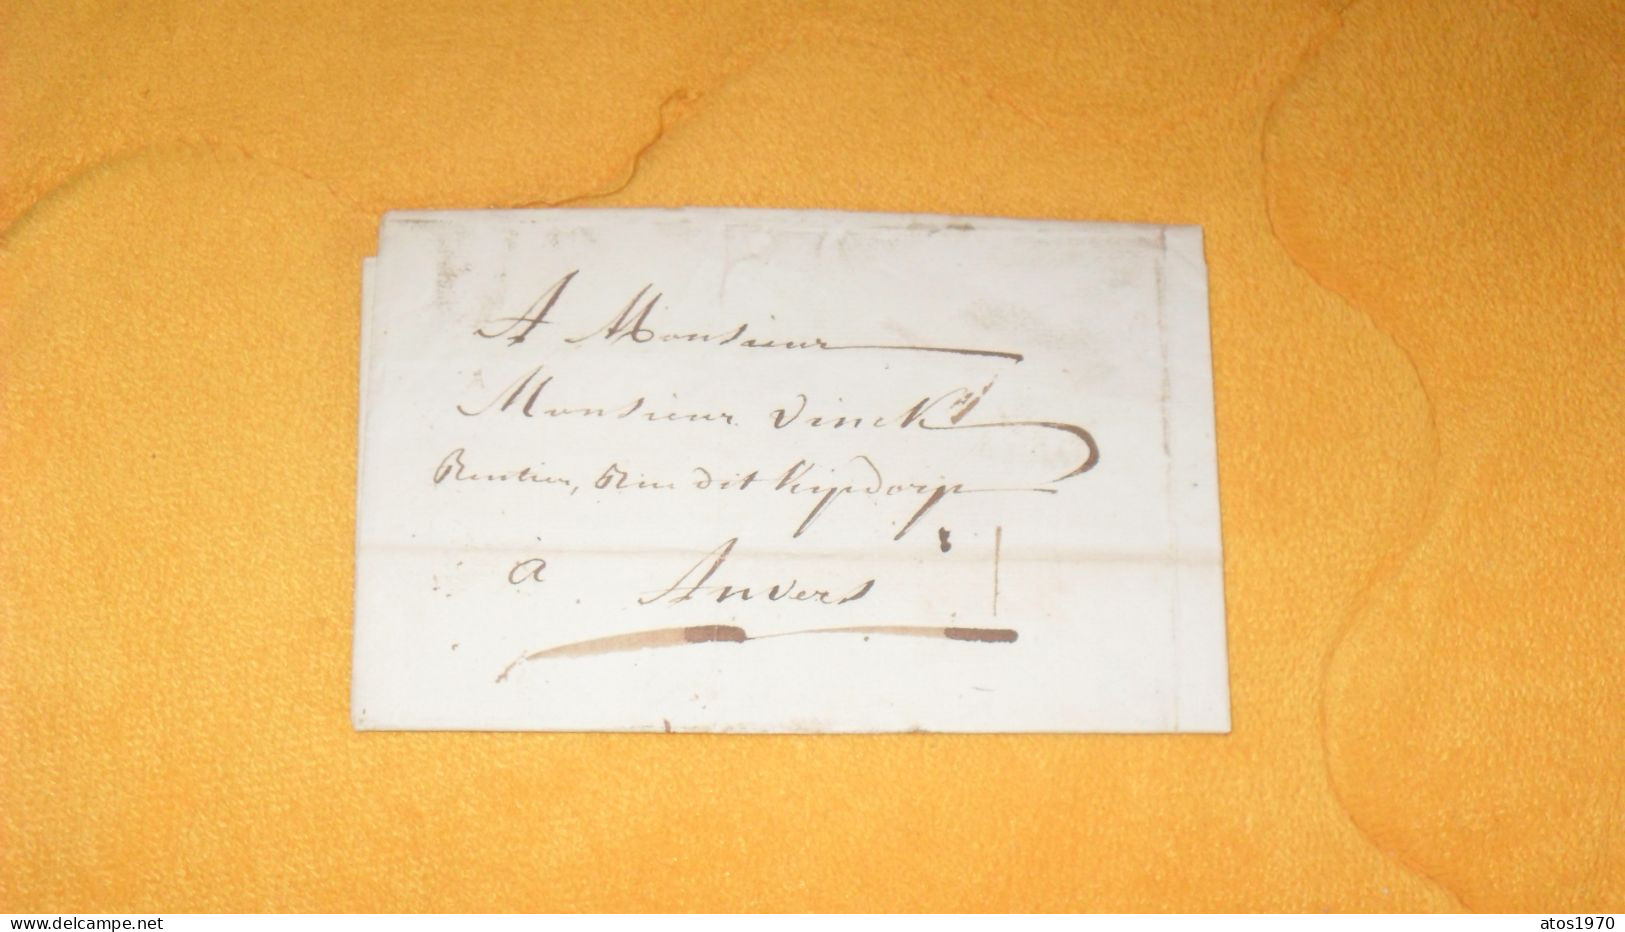 A Monsieur
Monsieur Vinck
Rentier, Rue dit Kipdorp
à Anvers
delcampe.net
atos1970